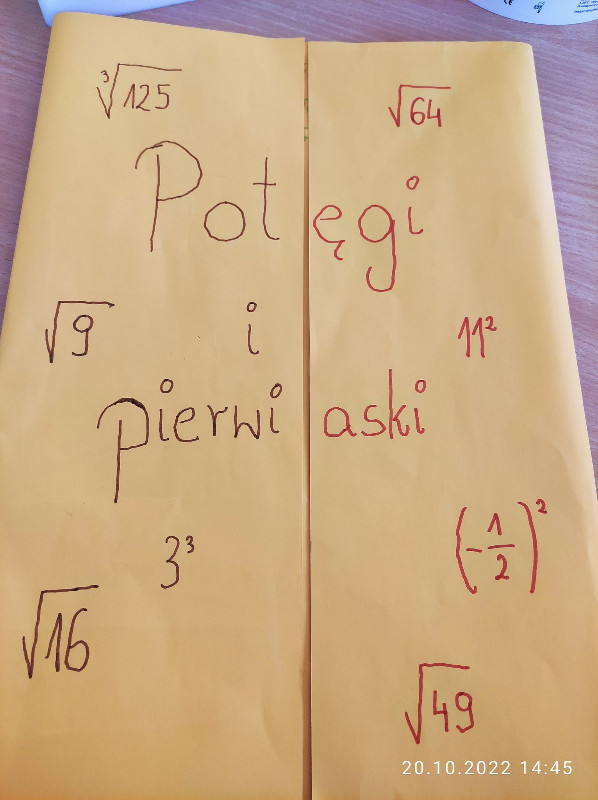 ∛125 √64
Potęgi
√9 i 11²
pierwiaski
3³ (-1/2)²
√16
√49
20.10.2022 14:45